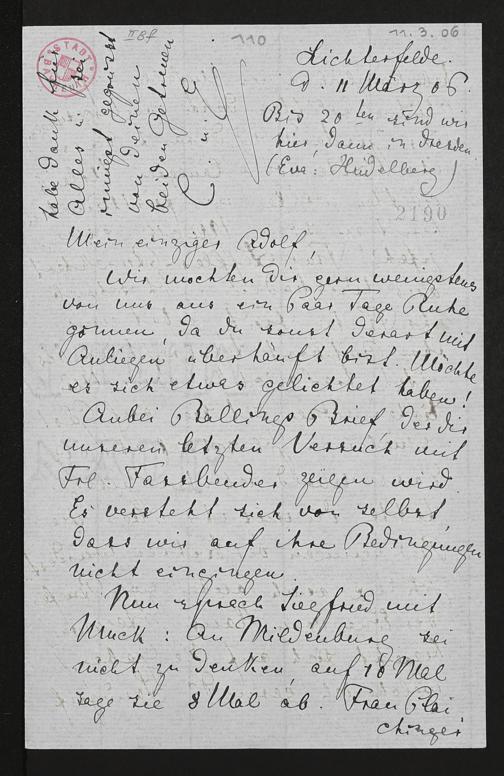 IIBf
110
11. 3. 06
Lichterfelde.
d. 11 März 06.
Bis 20ten sind wir
hier, dann in Dresden
(Eva: Heidelberg)
2190
Mein einziger Adolf,
Wir möchten Dir gern wenigstens
von uns aus ein Paar Tage Ruhe
gönnen, da du sonst derart mit
Anliegen überhäuft bist. Möchte
es sich etwas gelichtet haben!
Anbei Ballings Brief, der dir
unseren letzten Versuch mit
Frl. Fassbender zeigen wird.
Es versteht sich von selbst,
dass wir auf ihre Bedingungen
nicht eingingen.
Nun sprach Siegfried mit
Muck: An Mildenburg sei
nicht zu denken, auf 10 Mal
sage sie 8 Mal ab. Frau Plai
chinger
habe Dank für
Alles u. sei
innigst gegrüsst
von deinen
beiden Getreuen
C. u. E